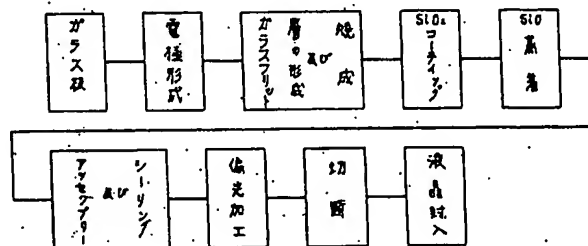 ガラス板
電極形成
ガラスフリット
層の形成
及び
焼成
SiO₂
コーティング
SiO
蒸着
アッセンブリー
及び
シーリング
偏光加工
切断
液晶封入